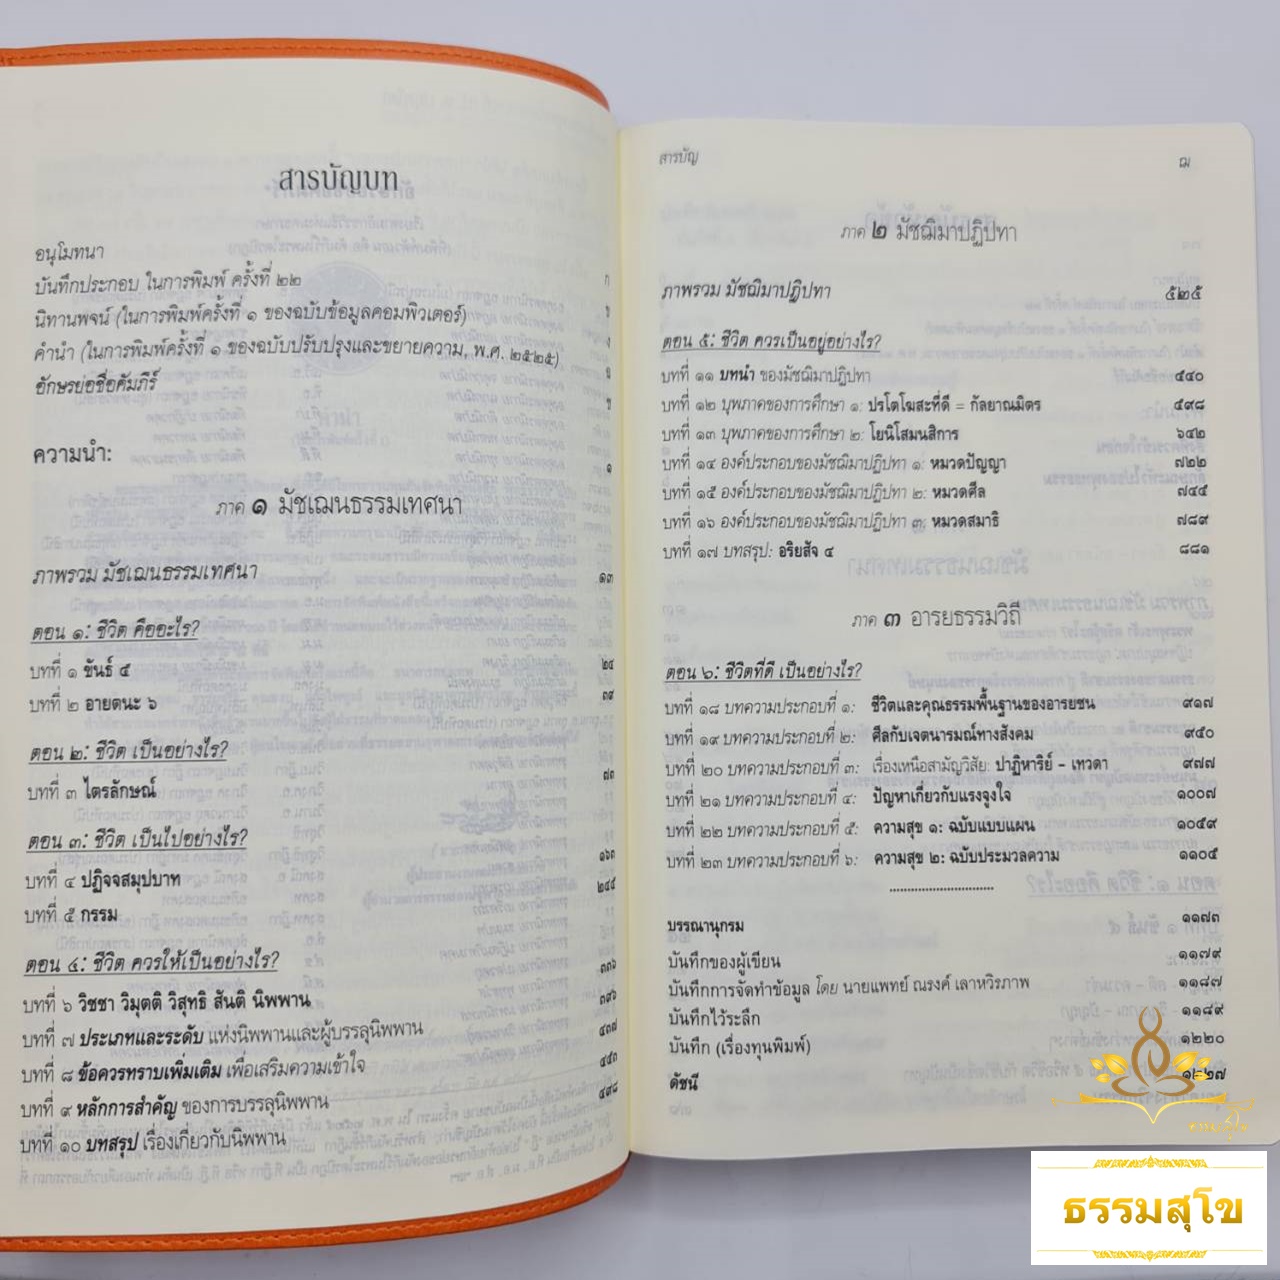 สารบัญบท
อนุโมทนา
บันทึกประกอบ ในการพิมพ์ ครั้งที่ ๒๒ ก
นิทานพจน์ (ในการพิมพ์ครั้งที่ ๑ ของฉบับข้อมูลคอมพิวเตอร์) ข
คำนำ (ในการพิมพ์ครั้งที่ ๑ ของฉบับปรับปรุงและขยายความ, พ.ศ. ๒๕๒๕) ง
อักษรย่อชื่อคัมภีร์
ความนำ: ๑
ภาค ๑ มัชเฌนธรรมเทศนา
ภาพรวม มัชเฌนธรรมเทศนา ๑๓
ตอน ๑: ชีวิต คืออะไร?
บทที่ ๑ ขันธ์ ๕ ๒๔
บทที่ ๒ อายตนะ ๖ ๓๙
ตอน ๒: ชีวิต เป็นอย่างไร?
บทที่ ๓ ไตรลักษณ์ ๗๗
ตอน ๓: ชีวิต เป็นไปอย่างไร?
บทที่ ๔ ปฏิจจสมุปบาท ๑๖๓
บทที่ ๕ กรรม ๒๔๕
ตอน ๔: ชีวิต ควรให้เป็นอย่างไร?
บทที่ ๖ วิชชา วิมุตติ วิสุทธิ สันติ นิพพาน ๓๓๖
บทที่ ๗ ประเภทและระดับ แห่งนิพพานและผู้บรรลุนิพพาน ๓๙๖
บทที่ ๘ ข้อควรทราบเพิ่มเติม เพื่อเสริมความเข้าใจ ๔๓๗
บทที่ ๙ หลักการสำคัญ ของการบรรลุนิพพาน ๔๕๓
บทที่ ๑๐ บทสรุป เรื่องเกี่ยวกับนิพพาน ๔๙๘
สารบัญ ฌ
ภาค ๒ มัชฌิมาปฏิปทา
ภาพรวม มัชฌิมาปฏิปทา ๕๒๕
ตอน ๕: ชีวิต ควรเป็นอยู่อย่างไร?
บทที่ ๑๑ บทนำ ของมัชฌิมาปฏิปทา ๕๔๐
บทที่ ๑๒ บุพภาคของการศึกษา ๑: ปรโตโฆสะที่ดี = กัลยาณมิตร ๕๙๘
บทที่ ๑๓ บุพภาคของการศึกษา ๒: โยนิโสมนสิการ ๖๔๒
บทที่ ๑๔ องค์ประกอบของมัชฌิมาปฏิปทา ๑: หมวดปัญญา ๗๒๒
บทที่ ๑๕ องค์ประกอบของมัชฌิมาปฏิปทา ๒: หมวดศีล ๗๔๕
บทที่ ๑๖ องค์ประกอบของมัชฌิมาปฏิปทา ๓: หมวดสมาธิ ๗๘๙
บทที่ ๑๗ บทสรุป: อริยสัจ ๔ ๘๘๑
ภาค ๓ อารยธรรมวิถี
ตอน ๖: ชีวิตที่ดี เป็นอย่างไร?
บทที่ ๑๘ บทความประกอบที่ ๑: ชีวิตและคุณธรรมพื้นฐานของอารยชน ๙๑๗
บทที่ ๑๙ บทความประกอบที่ ๒: ศีลกับเจตนารมณ์ทางสังคม ๙๕๐
บทที่ ๒๐ บทความประกอบที่ ๓: เรื่องเหนือสามัญวิสัย: ปาฏิหาริย์ - เทวดา ๙๗๗
บทที่ ๒๑ บทความประกอบที่ ๔: ปัญหาเกี่ยวกับแรงจูงใจ ๑๐๐๗
บทที่ ๒๒ บทความประกอบที่ ๕: ความสุข ๑: ฉบับแบบแผน ๑๐๕๙
บทที่ ๒๓ บทความประกอบที่ ๖: ความสุข ๒: ฉบับประมวลความ ๑๑๐๕
บรรณานุกรม ๑๑๗๓
บันทึกของผู้เขียน ๑๑๗๙
บันทึกการจัดทำข้อมูล โดย นายแพทย์ ณรงค์ เลาหวิรภาพ ๑๑๘๗
บันทึกไว้ระลึก ๑๑๘๙
บันทึก (เรื่องทุนพิมพ์) ๑๒๒๐
ดัชนี ๑๒๒๗
ธรรมสุโข
ธรรมสุโข